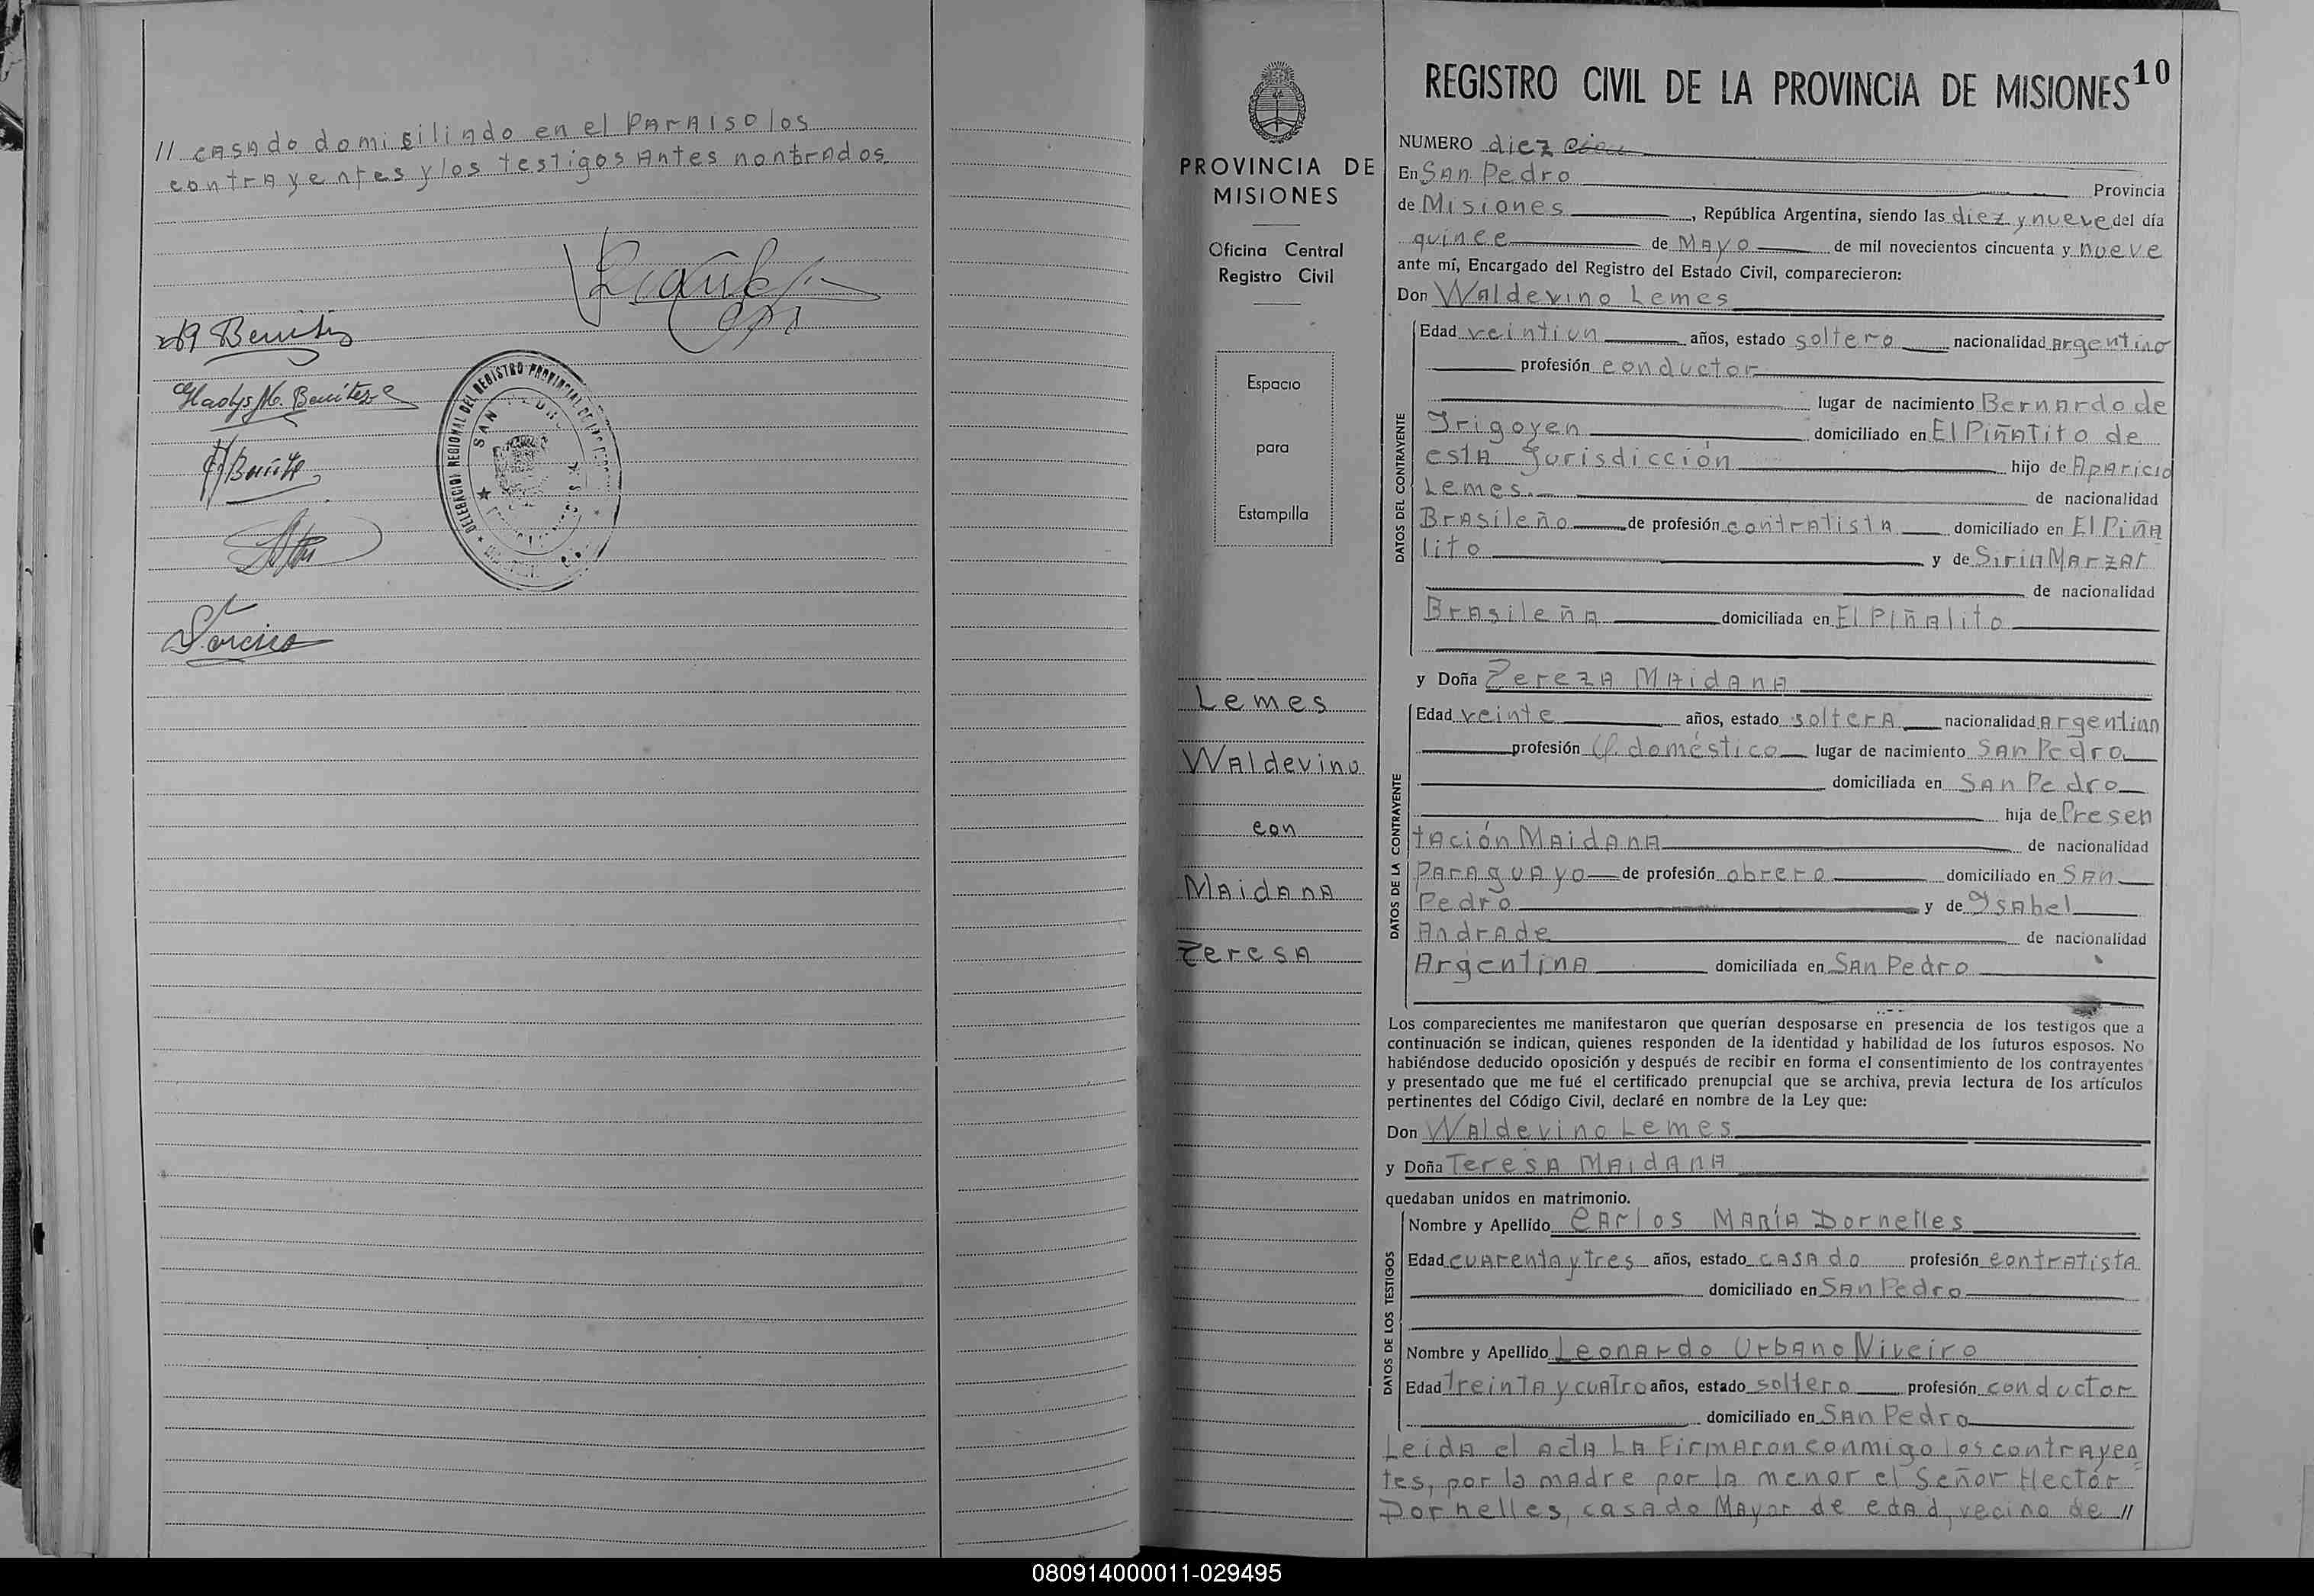 // casado domisiliado en el Paraiso los
contrayentes y los testigos antes nonbrados
Benitez
Gladys M. Benítez
DELEGACION REGIONAL DEL REGISTRO PROVINCIAL DE LAS PERSONAS
SAN PEDRO
PROVINCIA DE
MISIONES
Oficina Central
Registro Civil
Espacio
para
Estampilla
Lemes
Waldevino
con
Maidana
Teresa
REGISTRO CIVIL DE LA PROVINCIA DE MISIONES 10
NUMERO diez
En San Pedro Provincia
de Misiones, República Argentina, siendo las diez y nueve del día
quince de Mayo de mil novecientos cincuenta y nueve
ante mí, Encargado del Registro del Estado Civil, comparecieron:
Don Waldevino Lemes
DATOS DEL CONTRAYENTE
Edad veintiun años, estado soltero nacionalidad argentino
profesión conductor
lugar de nacimiento Bernardo de
Irigoyen domiciliado en El Piñatito de
esta Jurisdicción hijo de Aparicio
Lemes. de nacionalidad
Brasileño de profesión contratista domiciliado en El Piña
lito y de Siria Marzal
de nacionalidad
Brasileña domiciliada en El Piñalito
y Doña Tereza Maidana
DATOS DE LA CONTRAYENTE
Edad veinte años, estado soltera nacionalidad argentina
profesión q. doméstico lugar de nacimiento San Pedro
domiciliada en San Pedro
hija de Presen
tación Maidana de nacionalidad
Paraguayo de profesión obrero domiciliado en San
Pedro y de Ysabel
Andrade de nacionalidad
Argentina domiciliada en San Pedro
Los comparecientes me manifestaron que querían desposarse en presencia de los testigos que a
continuación se indican, quienes responden de la identidad y habilidad de los futuros esposos. No
habiéndose deducido oposición y después de recibir en forma el consentimiento de los contrayentes
y presentado que me fué el certificado prenupcial que se archiva, previa lectura de los artículos
pertinentes del Código Civil, declaré en nombre de la Ley que:
Don Waldevino Lemes
y Doña Teresa Maidana
quedaban unidos en matrimonio.
DATOS DE LOS TESTIGOS
Nombre y Apellido Carlos María Dornelles
Edad cuarenta y tres años, estado casado profesión contratista
domiciliado en San Pedro
Nombre y Apellido Leonardo Urbano Niveiro
Edad treinta y cuatro años, estado soltero profesión conductor
domiciliado en San Pedro
Leida el acta la firmaron conmigo los contrayen
tes, por la madre por la menor el Señor Hectór
Dornelles, casado Mayor de edad, vecino de //
080914000011-029495